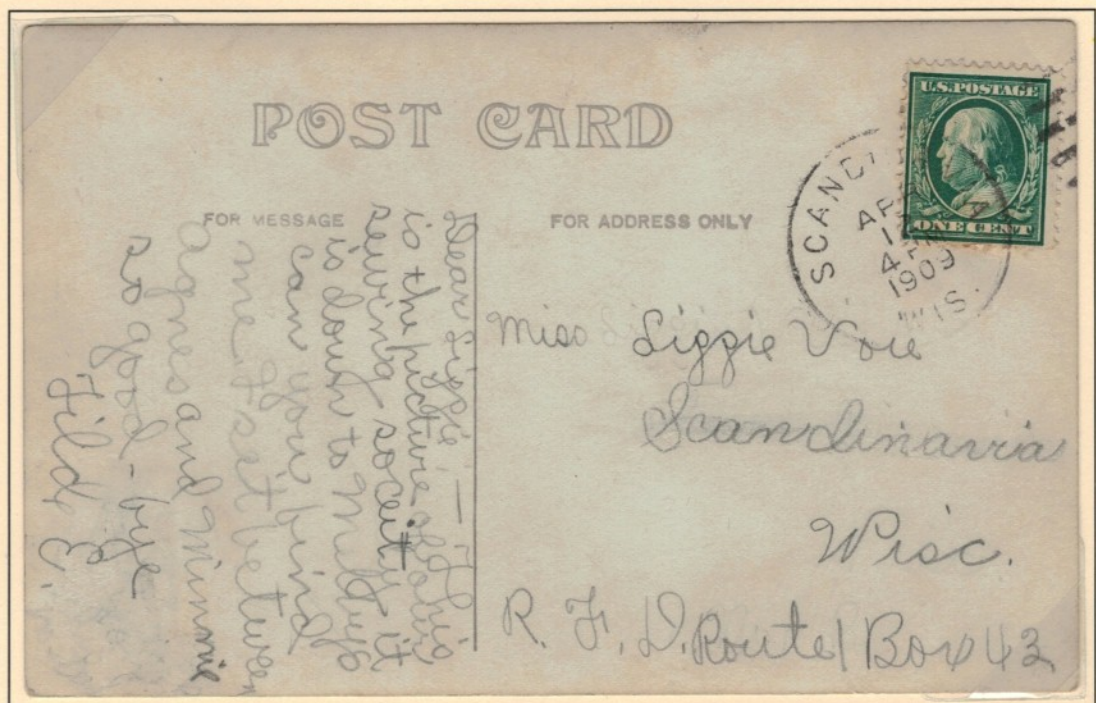 POST CARD
FOR MESSAGE
FOR ADDRESS ONLY
U.S. POSTAGE
ONE CENT
SCANDI A
AP
1
4 P
1909
WIS.
Dear Lizzie – This
is the picture of our
sewing soceity it
is down to
can you find
me I sat between
Agnes and Minnie
so good-bye
Tilda E.
Miss Lizzie Voie
Scandinavia
Wisc.
R. F. D. Route 1 Box 43